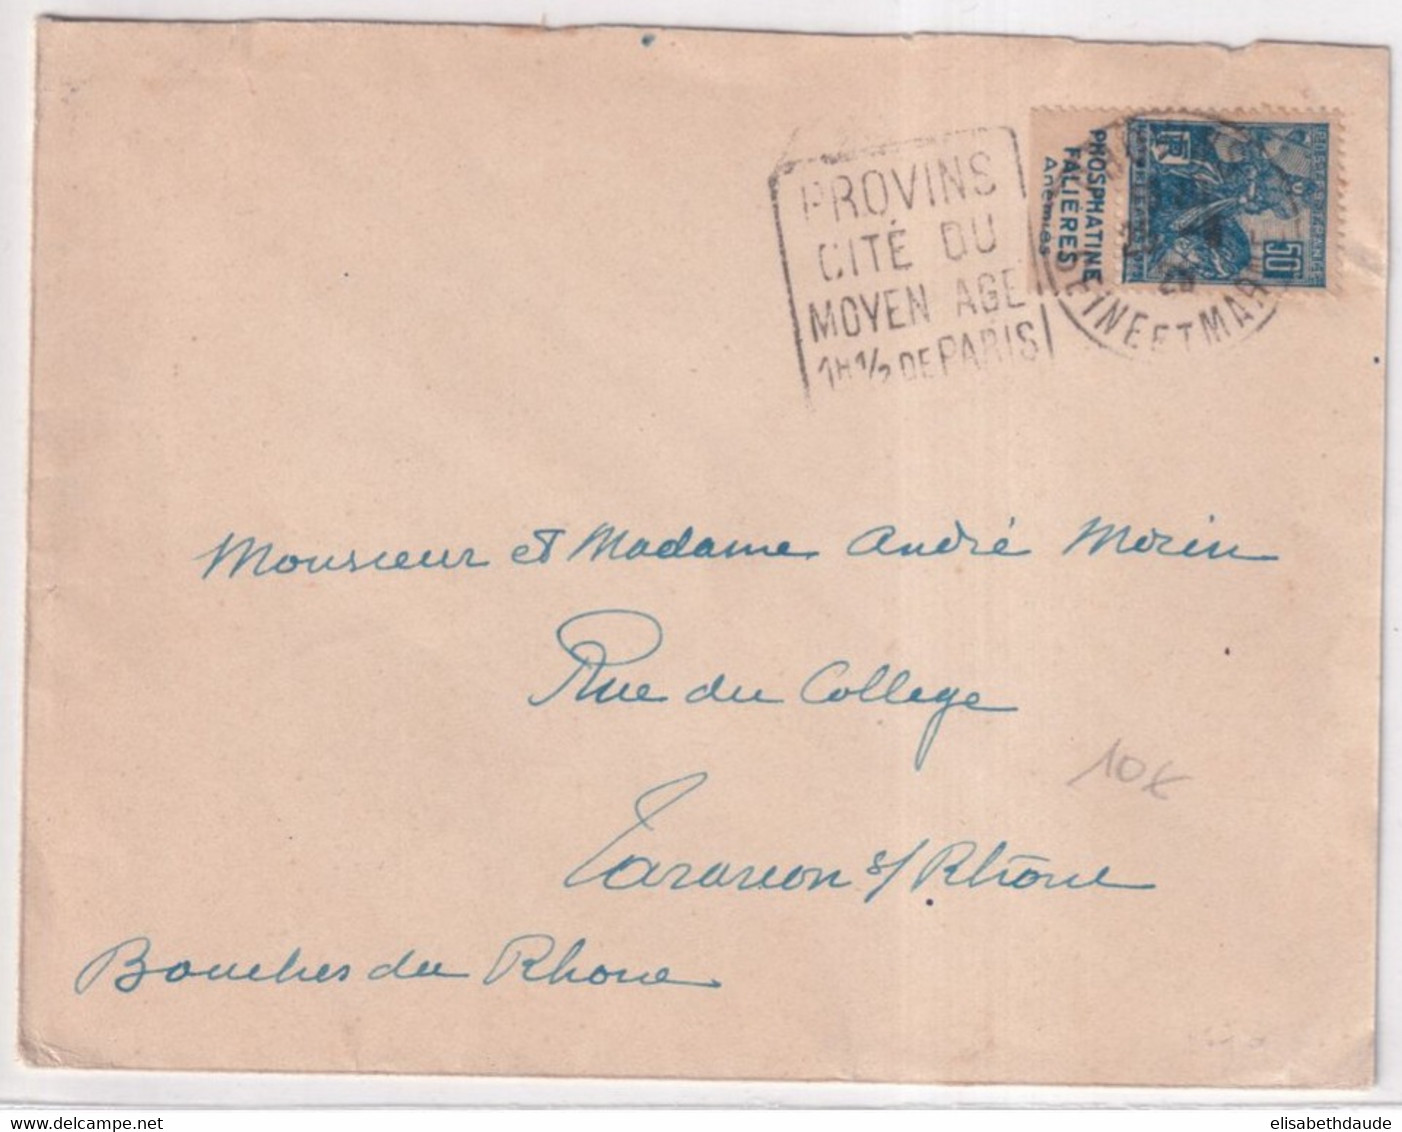 PROVINS
CITÉ DU
MOYEN AGE
1H1/2 DE PARIS
PHOSPHATINE
FALIÈRES
Anémies
RF
50c
SEINE ET MARNE
Monsieur et Madame André Morin
Rue du College
Tarascon s/ Rhône
Bouches du Rhone
10€
elisabethdaude